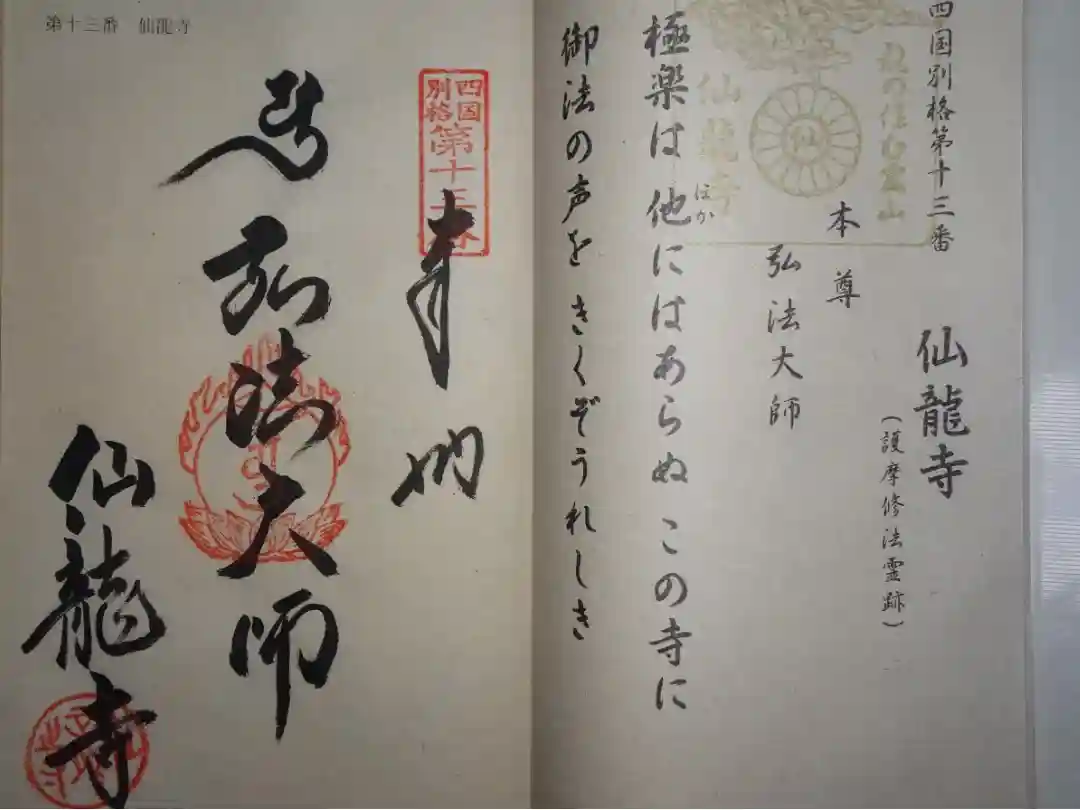 四国別格第十三番
仙龍寺
(護摩修法霊跡)
本尊
弘法大師
仙龍寺
極楽は 他にはあらぬ この寺に
ほか
御法の声を きくぞうれしき
第十三番 仙龍寺
四国
別格
第十三番
奉納
弘法大師
仙龍寺